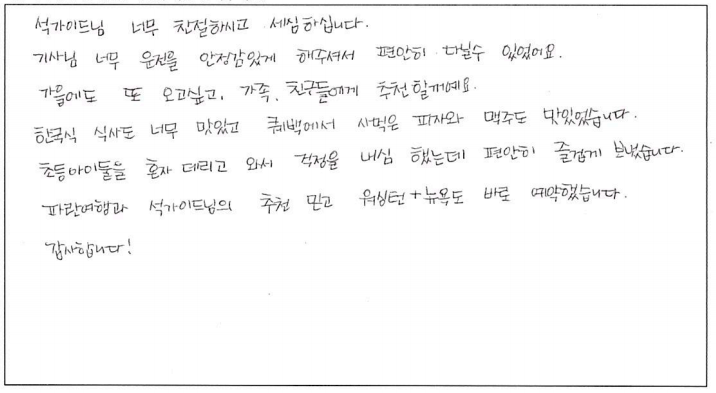 석가이드님 너무 친절하시고 세심하십니다.
기사님 너무 운전을 안정감있게 해주셔서 편안히 다닐수 있었어요.
가을에도 또 오고싶고, 가족, 친구들에게 추천할꺼예요.
한국식 식사도 너무 맛있고 퀘백에서 사먹은 피자와 맥주도 맛있었습니다.
초등아이둘을 혼자 데리고 와서 걱정을 내심 했는데 편안히 즐겁게 보냈습니다.
파란여행과 석가이드님의 추천 믿고 워싱턴+뉴욕도 바로 예약했습니다.
감사합니다!